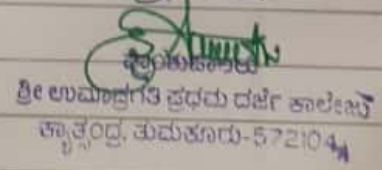 ಪ್ರಾಂಶುಪಾಲರು
ಶ್ರೀ ಉಮಾಪ್ರಗತಿ ಪ್ರಥಮ ದರ್ಜೆ ಕಾಲೇಜು
ಕ್ಯಾತ್ಸಂದ್ರ, ತುಮಕೂರು-572104